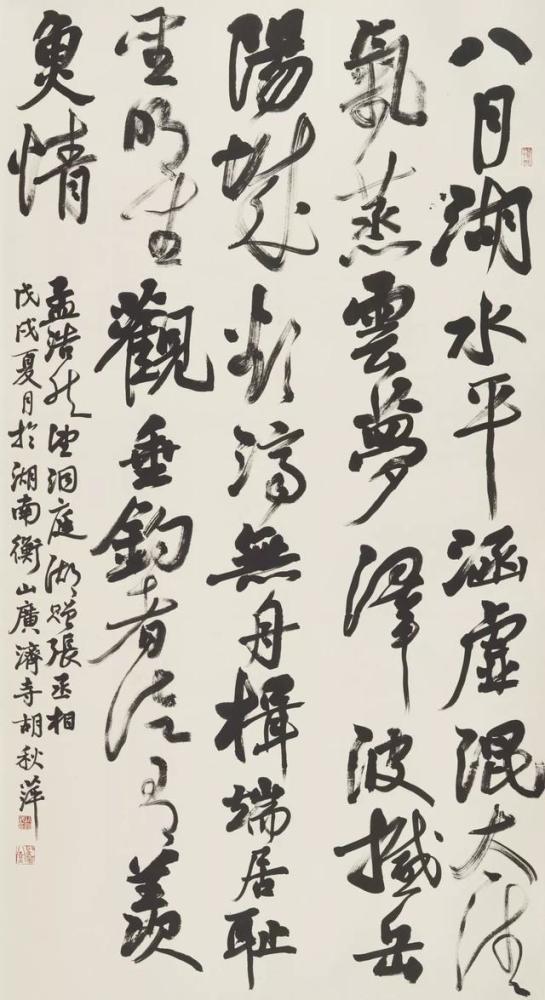 八月湖水平涵虛混太清
氣蒸雲夢澤波撼岳
陽城欲濟無舟楫端居耻
聖明坐觀垂釣者徒有羨
魚情
孟浩然望洞庭湖贈張丞相
戊戌夏月於湖南衡山廣濟寺胡秋萍